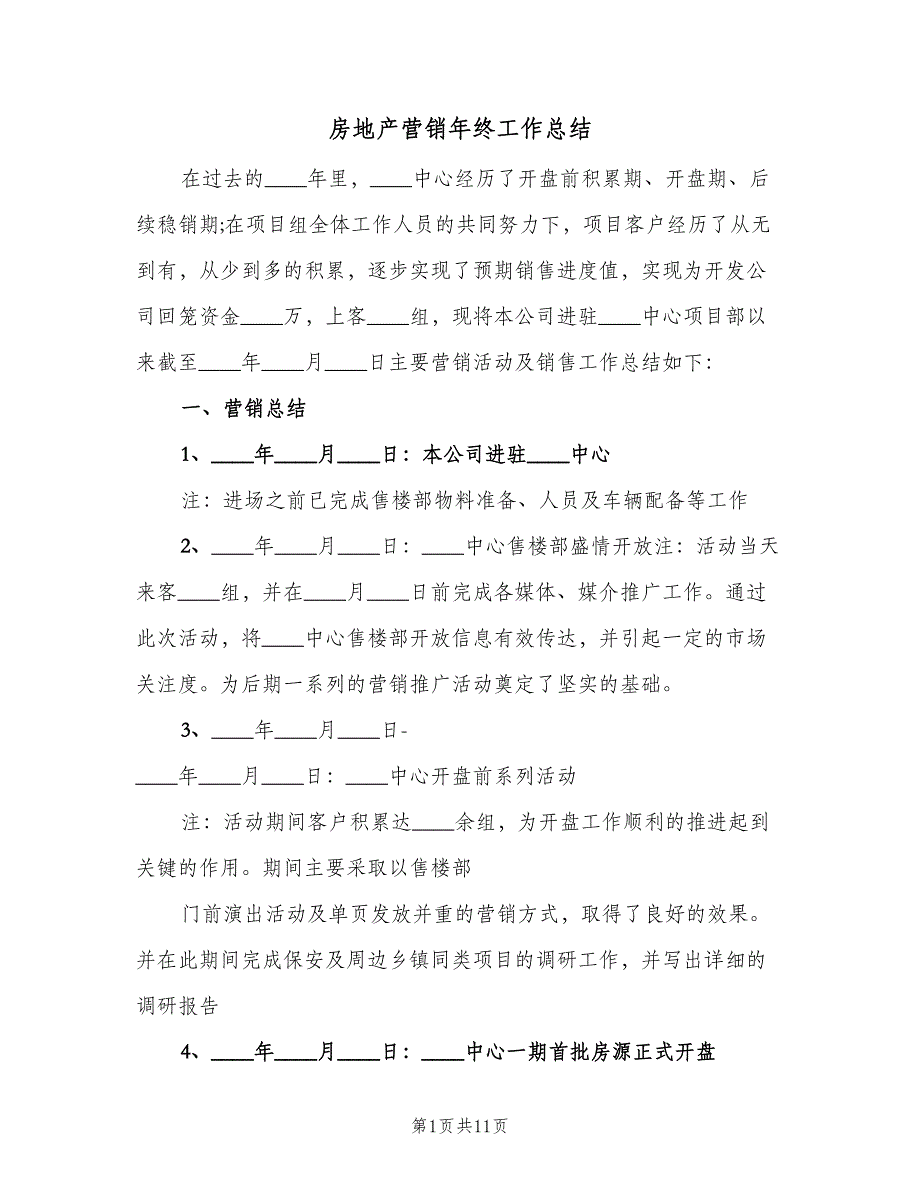 房地产营销年终工作总结
在过去的____年里，____中心经历了开盘前积累期、开盘期、后
续稳销期;在项目组全体工作人员的共同努力下，项目客户经历了从无
到有，从少到多的积累，逐步实现了预期销售进度值，实现为开发公
司回笼资金____万，上客____组，现将本公司进驻____中心项目部以
来截至____年____月____日主要营销活动及销售工作总结如下：
一、营销总结
1、____年____月____日：本公司进驻____中心
注：进场之前已完成售楼部物料准备、人员及车辆配备等工作
2、____年____月____日：____中心售楼部盛情开放注：活动当天
来客____组，并在____月____日前完成各媒体、媒介推广工作。通过
此次活动，将____中心售楼部开放信息有效传达，并引起一定的市场
关注度。为后期一系列的营销推广活动奠定了坚实的基础。
3、____年____月____日-
____年____月____日：____中心开盘前系列活动
注：活动期间客户积累达____余组，为开盘工作顺利的推进起到
关键的作用。期间主要采取以售楼部
门前演出活动及单页发放并重的营销方式，取得了良好的效果。
并在此期间完成保安及周边乡镇同类项目的调研工作，并写出详细的
调研报告
4、____年____月____日：____中心一期首批房源正式开盘
第1页共11页